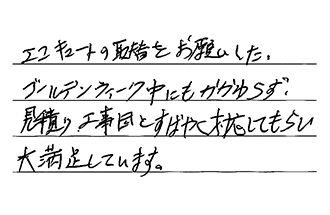 エコキュートの取替をお願いした。
ゴールデンウィーク中にもかかわらず、
見積り、工事日とすばやく対応してもらい
大満足しています。